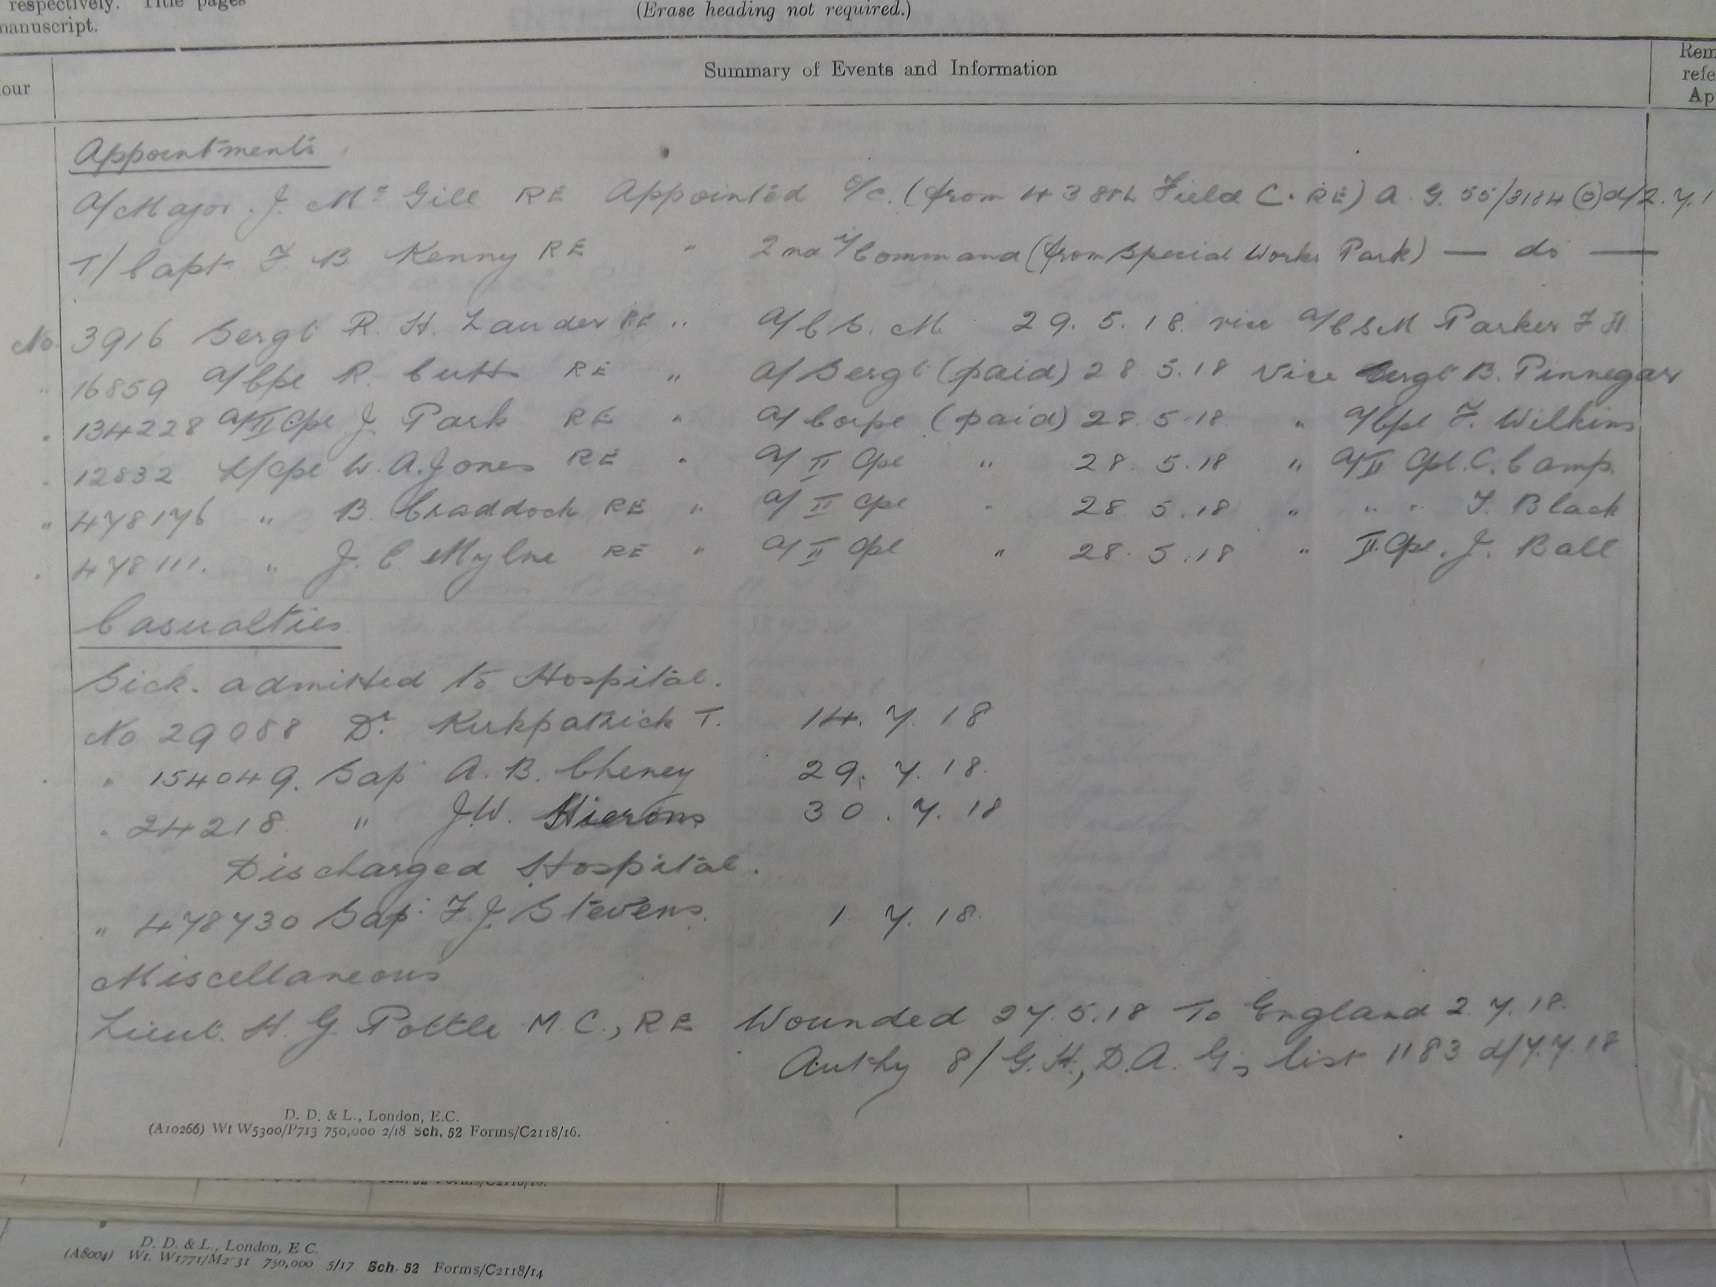 respectively. Title pages
manuscript.
(Erase heading not required.)
our
Summary of Events and Information
Rem
refe
Ap
Appointments
A/Major. J. Mc Gill RE Appointed O/C. (from 438th Field C. RE) A. G. 55/3184 (O) d/2.7.1
T/Capt F B Kenny RE " 2nd i/Command (from Special Works Park) — do —
No 3916 Sergt R. H. Lauder RE " A/C S. M 29. 5. 18. vice A/CSM Parker F H.
" 16859 A/Cpl R. Cutts RE " A/Sergt (paid) 28 5.18 Vice Sergt B. Pinnegar
" 134228 A/II Cpl J. Park RE " A/Corpl (paid) 28. 5.18 " A/Cpl F. Wilkins
" 12832 L/Cpl W. A. Jones RE " A/II Cpl " 28. 5.18 " A/II Cpl. C. Camp
" 478176 " B. Craddock RE " A/II Cpl " 28. 5.18 " " " F. Black
" 478111. " J. C. Mylne RE " A/II Cpl " 28. 5.18 " II Cpl. J. Ball
Casualties
Sick. admitted to Hospital.
No 29088 Dr. Kirkpatrick T. 14. 7. 18
" 154049. Sap A. B. Cheney 29. 7. 18.
" 24218 " J.W. Hierons 30. 7. 18
Discharged Hospital.
" 478730 Sap. F.J. Stevens. 1. 7. 18
Miscellaneous
Lieut. H. G. Pottle M.C., RE Wounded 27.5.18 To England 2.7.18.
Authy 8/ G.H., D.A. G; list 1183 d/7.7.18
D. D. & L., London, E.C.
(A10266) Wt W5300/P713 750,000 2/18 Sch. 52 Forms/C2118/16.
Sch. 52 Forms/C2118/16.
D. D. & L., London, E C.
(A8004) Wt. W1771/M2-31 750,000 5/17 Sch. 52 Forms/C2118/14